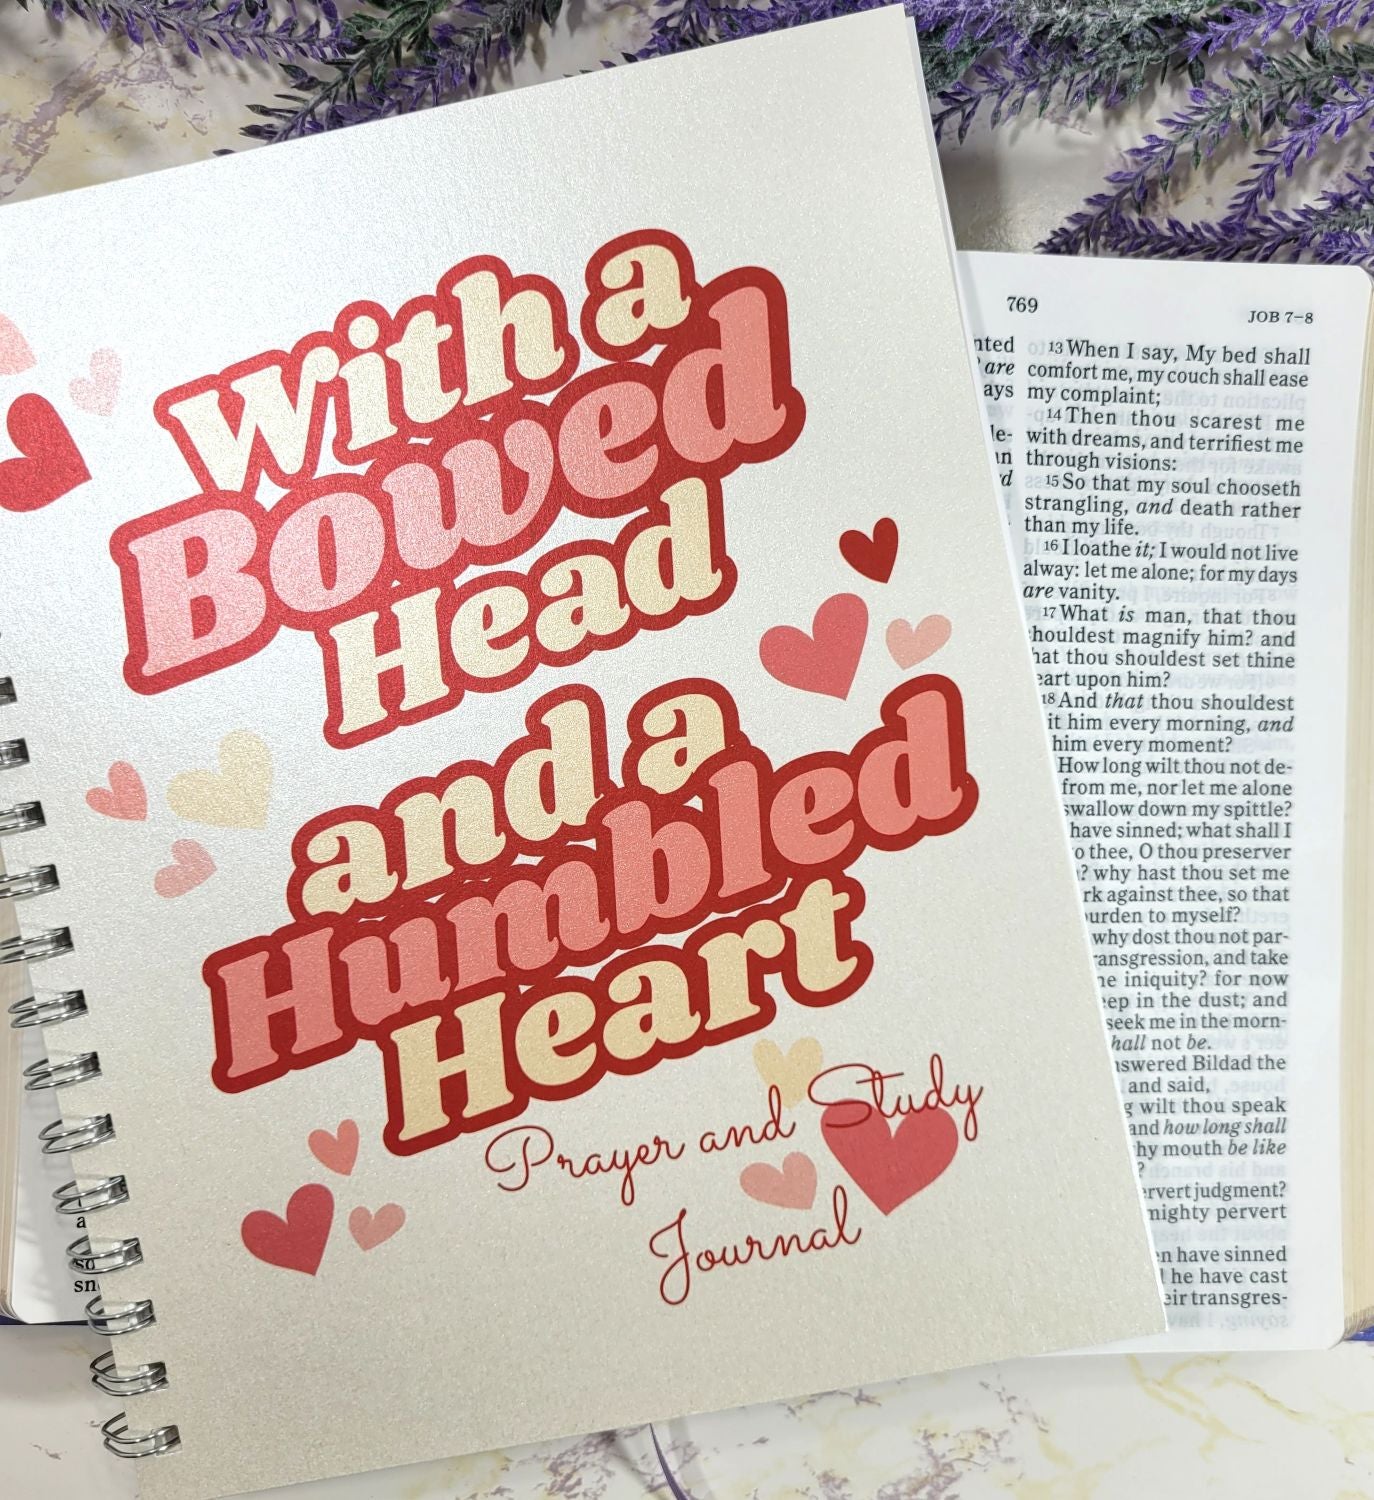 With a
Bowed
Head
and a
Humbled
Heart
Prayer and Study
Journal
769
JOB 7–8
are
13 When I say, My bed shall
comfort me, my couch shall ease
my complaint;
14 Then thou scarest me
with dreams, and terrifiest me
through visions:
15 So that my soul chooseth
strangling, and death rather
than my life.
16 I loathe it; I would not live
alway: let me alone; for my days
are vanity.
17 What is man, that thou
shouldest magnify him? and
that thou shouldest set thine
upon him?
18 And that thou shouldest
it him every morning, and
him every moment?
How long wilt thou not de-
from me, nor let me alone
swallow down my spittle?
have sinned; what shall I
thee, O thou preserver
? why hast thou set me
against thee, so that
to myself?
why dost thou not par-
and take
iniquity? for now
in the dust; and
seek me in the morn-
not be.
Bildad the
and said,
wilt thou speak
and how long shall
mouth be like
?
judgment?
pervert
have sinned
he have cast
transgres-